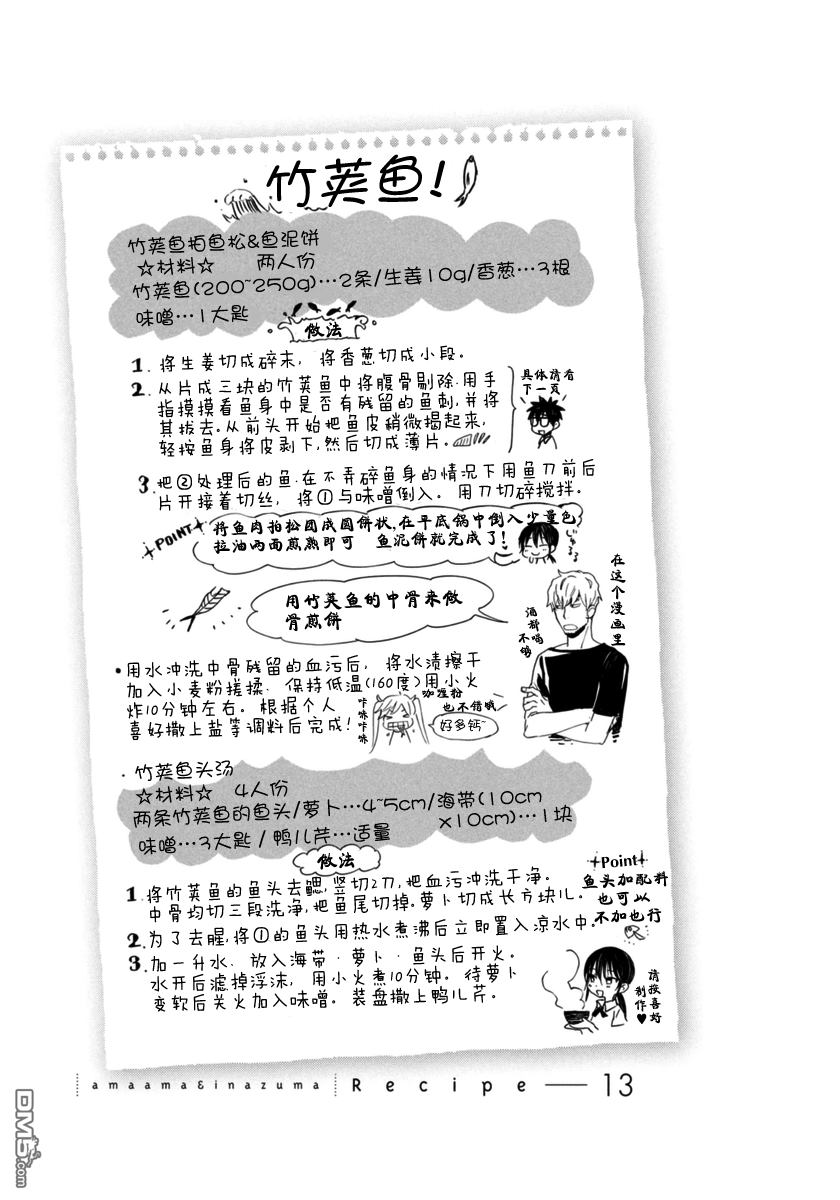 竹荚鱼!
竹荚鱼拍鱼松&鱼泥饼
☆材料☆ 两人份
竹荚鱼(200~250g)…2条/生姜10g/香葱…3根
味噌…1大匙
做法
1. 将生姜切成碎末, 将香葱切成小段。
2. 从片成三块的竹荚鱼中将腹骨剔除.用手
指摸摸看鱼身中是否有残留的鱼刺,并将
其拔去.从前头开始把鱼皮稍微揭起来,
轻按鱼身将皮剥下,然后切成薄片。
具体请看
下一页
3. 把②处理后的鱼.在不弄碎鱼身的情况下用鱼刀前后
片开接着切丝, 将①与味噌倒入。 用刀切碎搅拌.
+POINT+
将鱼肉拍松团成圆饼状,在平底锅中倒入少量色
拉油两面煎熟即可 鱼泥饼就完成了!
用竹荚鱼的中骨来做
骨煎饼
在这个漫画里
酒都喝
不够
·用水冲洗中骨残留的血污后, 将水渍擦干
加入小麦粉搓揉. 保持低温(160度)用小火
炸10分钟左右。根据个人
喜好撒上盐等调料后完成!
咔嚓咔嚓
咖喱粉
也不错哦
好多钙~
·竹荚鱼头汤
☆材料☆ 4人份
两条竹荚鱼的鱼头/萝卜…4~5cm/海带(10cm
x10cm)…1块
味噌…3大匙/鸭儿芹…适量
做法
1. 将竹荚鱼的鱼头去鳃,竖切2刀,把血污冲洗干净。
中骨均切三段洗净,把鱼尾切掉.萝卜切成长方块儿.
2. 为了去腥,将①的鱼头用热水煮沸后立即置入凉水中.
3. 加一升水. 放入海带·萝卜·鱼头后开火。
水开后滤掉浮沫, 用小火煮10分钟。待萝卜
变软后关火加入味噌。装盘撒上鸭儿芹。
+Point+
鱼头加配料
也可以
不加也行
请按喜好
制作♥
amaama&inazuma Recipe — 13
DM5.com